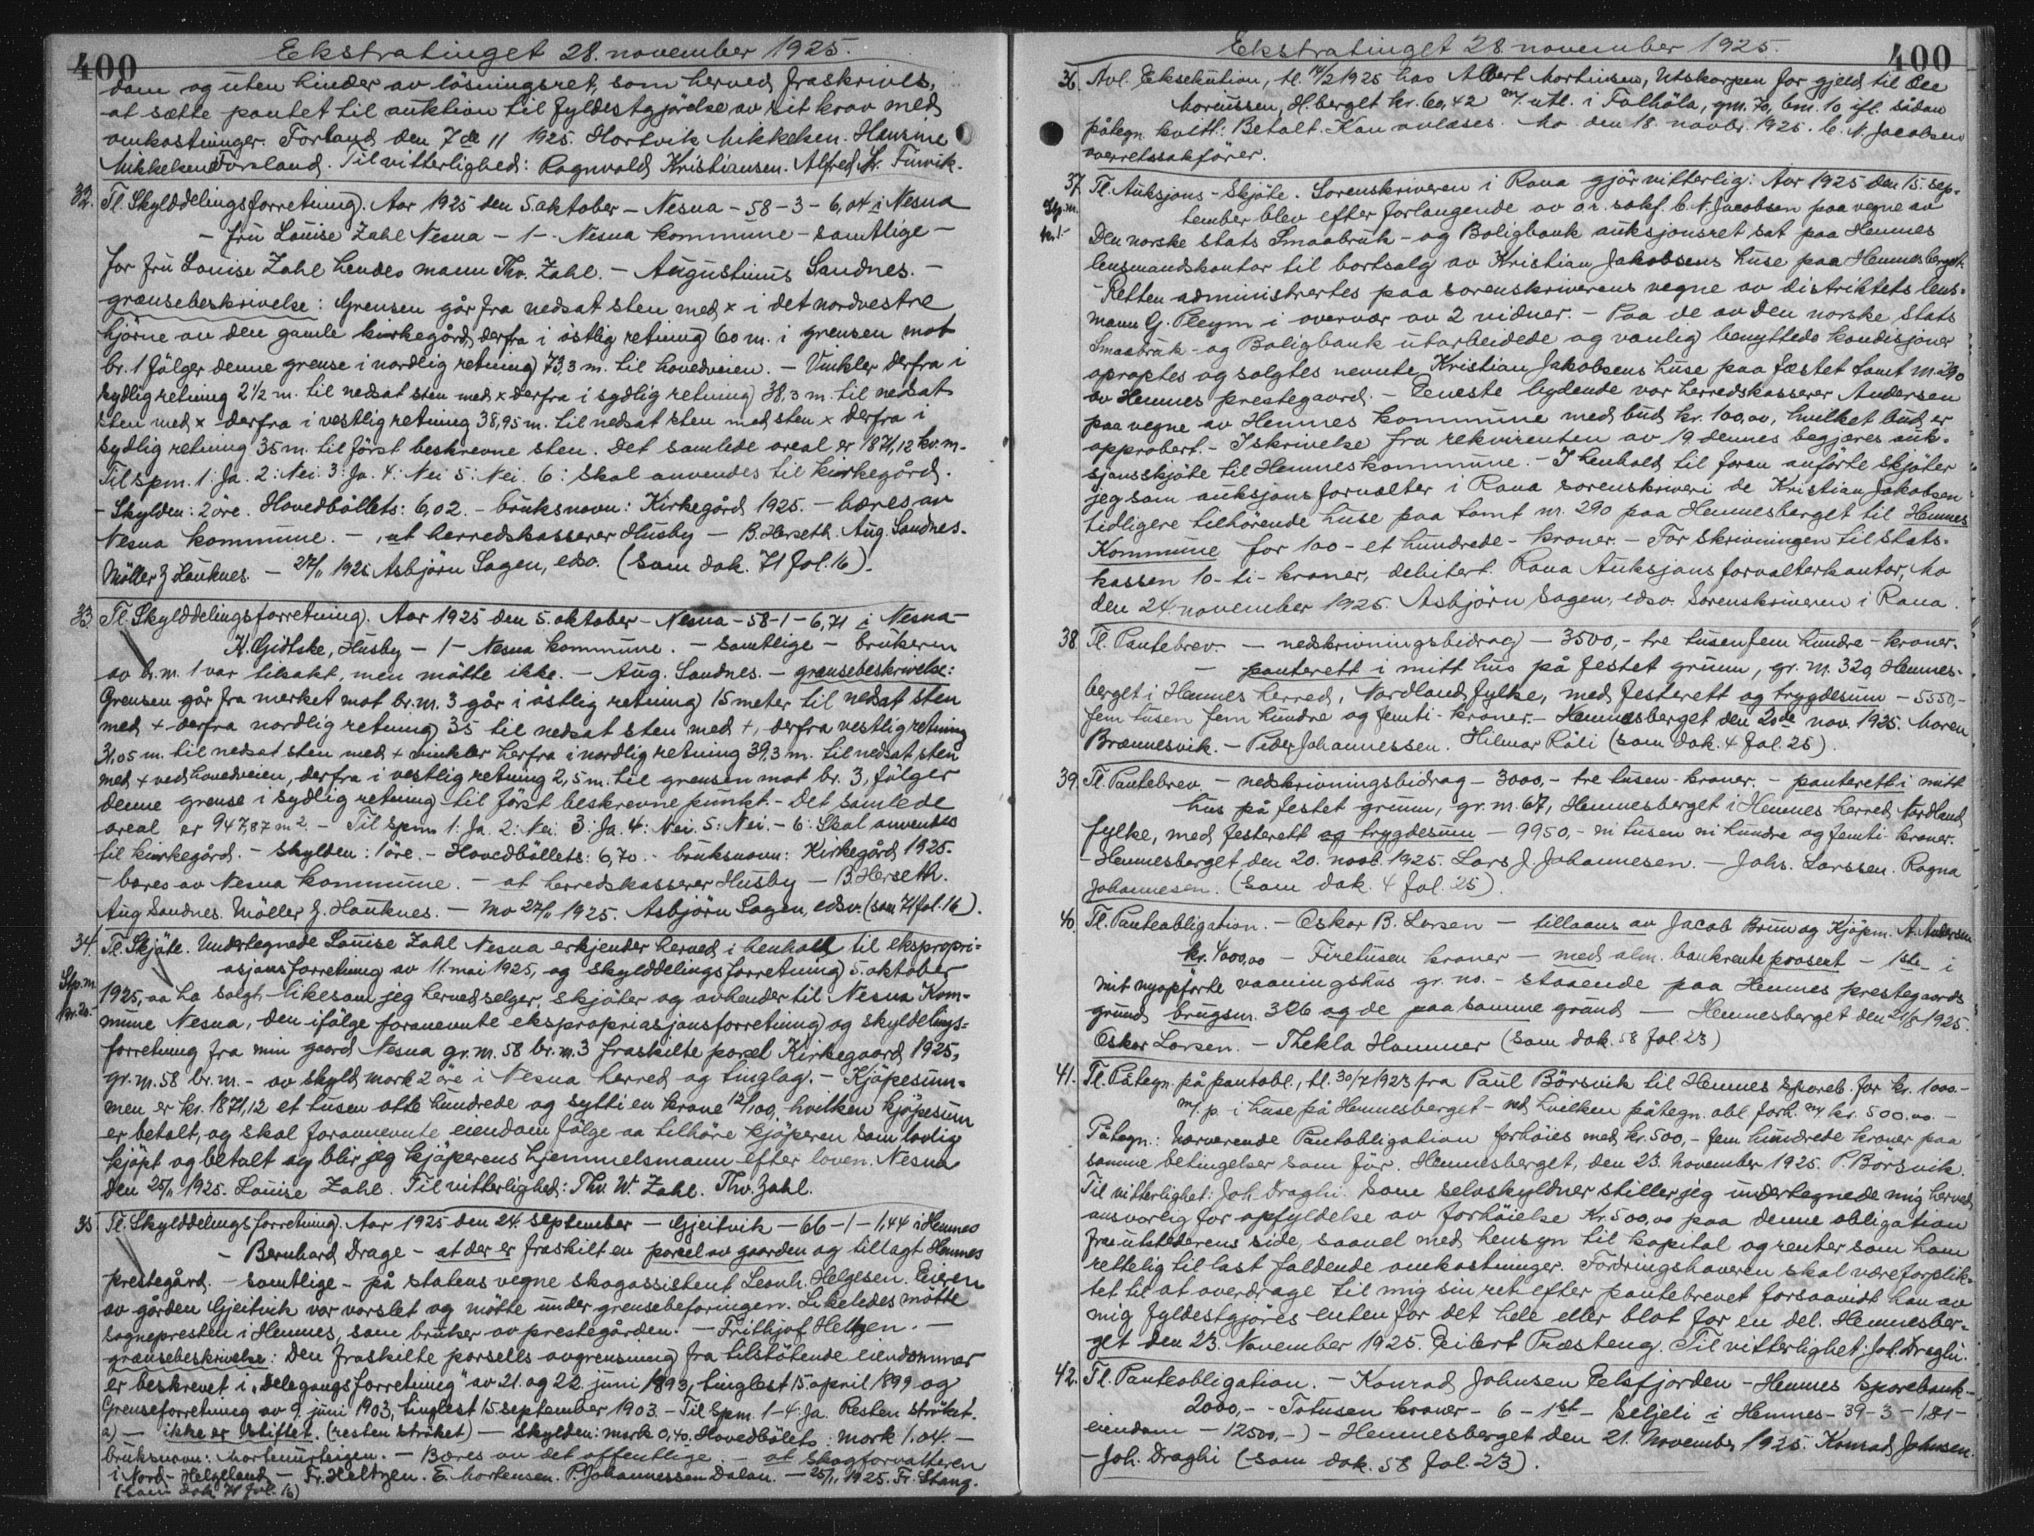 400
Ekstratinget 28. november 1925.
dom og uten hinder av løsningsret, som herved fraskrives,
at sætte pantet til auktion til fyldestgjørelse av sit krav med
omkostninger. Forland den 7de 11 1925. Hartvik Mikkelsen. Hensine
Mikkelsen Forsland. Til vitterlighed: Ragnvald Kristiansen. Alfred Kr. Finvik.
32. Tl. Skylddelingsforretning. Aar 1925 den 5. oktober – Nesna – 58 – 3 – 6,04 i Nesna
– fru Louise Zahl Nesna – 1 – Nesna kommune – samtlige –
for fru Louise Zahl hendes mann Thv. Zahl. – Augustinus Sandnes. –
grænsebeskrivelse: Grensen går fra nedsat sten med x i det nordvestre
hjørne av den gamle kirkegård, derfra i østlig retning 60 m. i grensen mot
br. 1 følger denne grense i nordlig retning 73,3 m. til hovedveien. – Vinkler derfra i
sydlig retning 2½ m. til nedsat sten med x derfra i sydlig retning 38,3 m. til nedsat
sten med x derfra i vestlig retning 38,95 m. til nedsat sten med sten x derfra i
sydlig retning 35 m. til først beskrevne sten. Det samlede areal er 1871,12 kv.m.
Til spm. 1: Ja. 2: Nei 3: Ja. 4: Nei 5: Nei. 6: Skal anvendes til kirkegård.
– Skylden: 2 øre. Hovedbøllets: 6,02. – bruksnavn: Kirkegård 1925. – bæres av
Nesna kommune. – at herredskasserer Husby – B. Herseth. Aug. Sandnes.
Møller Z Hauknes. – 27/11 1925 Asbjørn Sagen, edsv. (som dok. 71 fol. 16).
33. Tl. Skylddelingsforretning. Aar 1925 den 5. oktober – Nesna – 58 – 1 – 6,71 i Nesna –
H. Gidtske, Husby – 1 – Nesna kommune. – samtlige – brukeren
av br. nr. 1 var tilsakt, men møtte ikke. – Aug. Sandnes. – grænsebeskrivelse:
Grensen går fra merket mot br. nr. 3 går i østlig retning 15 meter til nedsat sten
med + derfra nordlig retning 35 til nedsat sten med +, derfra vestlig retning
31,05 m. til nedsat sten med + vinkler herfra i nordlig retning 39,3 m. til nedsat sten
med + ved hovedveien, derfra i vestlig retning 2,5 m. til grensen mot br. 3, følger
denne grense i sydlig retning til først beskrevne punkt. – Det samlede
areal er 947,87 m². – Til spm 1: Ja. 2: Nei 3: Ja. 4: Nei. 5: Nei. – 6: Skal anvendes
til kirkegård. – skylden: 1 øre. – Hovedbøllets: 6,70. – bruksnavn: Kirkegård 1925.
– bæres av Nesna kommune. – at herredskasserer Husby – B. Herseth.
Aug Sandnes. Møller Z. Hauknes. – Mo 27/11 1925. Asbjørn Sagen, edsv. (som 71 fol. 16).
34. Tl. Skjøte. Undertegnede Louise Zahl Nesna erkjender herved i henhold til ekspropri=
asjonsforretning av 11. mai 1925, og skylddelingsforretning 5. oktober
Stp. m. kr. 20.-
1925, aa ha solgt, likesom jeg herved selger, skjøter og avhender til Nesna Kom=
mune Nesna, den ifølge forannevnte ekspropriasjonsforretning og skyldelings=
forretning fra min gaard Nesna gr. nr. 58 br. nr. 3 fraskilte parcel Kirkegaard 1925,
gr. nr. 58 br. nr. – av skyld mark 2 øre i Nesna herred og tinglag. – Kjøpesum=
men er kr. 1871,12 et tusen otte hundrede og sytti en krone 12/100, hvilken kjøpesum
er betalt, og skal forannevnte eiendom følge aa tilhøre kjøperen som lovlig
kjøpt og betalt og blir jeg kjøperens hjemmelsmann efter loven. Nesna
den 25/11 1925. Louise Zahl. Til vitterlighed: Thv. W. Zahl. Thv. Zahl.
35. Tl. Skylddelingsforretning. Aar 1925 den 24. september – Gjeitvik – 66 – 1 – 1,44 i Hemnes
– Bernhard Drage – at der er fraskilt en parcel av gaarden og tillagt Hemnes
prestegård. – samtlige – på statens vegne skogassistent Leonh. Helgesen. Eieren
av gården Gjeitvik var varslet og møtte under grensebefaringen. Likeledes møtte
sognepresten i Hemnes, som bruker av prestegården. – Frithjof Heltzen. –
grænsebeskrivelse: Den fraskilte parsells avgrensning fra tilstøtende eiendommer
er beskrevet i „Delegangsforretning" av 21. og 22. juni 1893, tinglest 15 april 1899 og
Grenseforretning av 9. juni 1903, tinglest 15 september 1903. – Til Spm. 1–4: Ja. Resten strøket.
a) – ikke er stiftet. (resten strøket) – Skylden: mark 0,40. Hovedbølets: mark 1,04. –
bruksnavn: Mortenurteigen. – Bæres av det offentlige. – at skogforvalteren
i Nord-Helgeland – Fr. Heltzen. E. Mortensen. P. Johannessen Dalan. – 25/11 1925. Fr. Stang.
(som dok 71 fol. 16)
Ekstratinget 28 november 1925.
400
36. Avl. Eksekution, tl. 14/2 1925 hos Albert Martinsen, Utskarpen for gjeld til Ole
Monussen, H.berget kr. 60,42 m/. utl. i Talhøla, gnr. 70, bnr. 10 ifl. sådan
påtegn. kvitt: Betalt. Kan avlæses. Mo den 18. novbr. 1925. C. N. Jacobsen
overretssakfører.
37. Tl. Auksjons-Skjøte. Sorenskriveren i Rana gjør vitterlig: Aar 1925 den 15. sep=
Stp. m. kr. 1.-
tember blev efter forlangende av o.r. sakf. C. N. Jacobsen paa vegne av
Den norske stats Smaabruk- og Boligbank auksjonsret sat paa Hemnes
lensmandskontor til bortsalg av Kristian Jakobsens huse paa Hemnesberget.
Retten administrertes paa sorenskriverens vegne av distriktets lens=
mann G. Pleym i overvær av 2 vidner. – Paa de av Den norske Stats
Smaabruk- og Boligbank utarbeidede og vanlig benyttede kondisjoner
opraptes og solgtes nevnte Kristian Jakobsens huse paa fæstet tomt nr. 290
av Hemnes prestegaard. – Eneste bydende var herredskasserer Andersen
paa vegne av Hemnes kommune med bud kr. 100,00, hvilket bud er
approbert. – I skrivelse fra rekvirenten av 19 dennes begjæres auk=
sjonsskjøte til Hemnes kommune. – I henhold til foran anførte skjøter
jeg som auksjonsforvalter i Rana sorenskriveri de Kristian Jakobsen
tidligere tilhørende huse paa tomt nr. 290 paa Hemnesberget til Hemnes
Kommune for 100 – et hundrede – kroner. – For skrivningen til stats=
kassen 10 – ti – kroner, debitert. Rana Auksjonsforvalterkontor, Mo
den 24. november 1925. Asbjørn Sagen, edsv. Sorenskriveren i Rana.
38. Tl. Pantebrev – nedskrivningsbidrag – 3500,- tre tusen fem hundre – kroner.
– panterett i mitt hus på festet grunn, gr. nr. 329, Hemnes-
berget i Hemnes herred, Nordland fylke, med festerett og trygdesum – 5550,-
fem tusen fem hundre og femti – kroner. – Hemnesberget den 20de nov. 1925. Maren
Brennesvik. – Peder Johannessen. Hilmar Råli (som dok. 4 fol. 25).
39. Tl. Pantebrev – nedskrivningsbidrag – 3000,- tre tusen kroner. – panterett i mitt
hus på festet grunn, gr. nr. 67, Hemnesberget i Hemnes herred, Nordland
fylke, med festerett og trygdesum – 9950,- ni tusen ni hundre og femti kroner.
– Hemnesberget den 20. novb. 1925. Lars J. Johannesen. – Johs. Larssen. Ragna
Johannesen. (som dok. 4 fol. 25).
40. Tl. Panteobligation. – Oskar B. Larsen – tillaans av Jacob Bruu og Kjøpm. A. Andersen
kr. 4000,00 – Firetusen kroner – med alm. bankrente prosent – 1ste i
mit nyopførte vaaningshus gr. no. – staaende paa Hemnes prestegaards
grund brugsn. 306 og de paa samme grund – Hemnesberget den 21/8 1925.
Oskar Larsen. – Thekla Hammer (som dok. 58 fol. 23)
41. Tl. Påtegn. på pantobl., tl. 30/7 1923 fra Paul Børsvik til Hemnes spareb. for kr. 1000.–
m/. p. i huse på Hemnesberget – ved hvilken påtegn. obl. forh. m/ kr. 500,00. –
Påtegn.: Nærværende Pantobligation forhøies med kr. 500,- fem hundrede kroner paa
samme betingelser som før. Hemnesberget, den 23. November 1925. P. Børsvik.
Til vitterlighet: Joh. Draghi. Som selvskyldner stiller jeg undertegnede mig herved
ansvarlig for opfyldelse av forhøielse Kr. 500,00 paa denne obligation
fra utstederens side, saavel med hensyn til kapital og renter som ham
rettelig til last faldende omkostninger. Fordringshaveren skal være forplik=
tet til at overdrage til mig sin ret efter pantebrevet forsaavidt han av
mig fyldestgjøres enten for det hele eller blot for en del. Hemnesber=
get den 23. November 1925. Eilert Præsteng. Til vitterlighet: Joh. Draghi.
42. Tl. Panteobligation. – Konrad Johnsen Eelsfjorden – Hemnes Sparebank –
2000,- – Totusen kroner – 6 – 1st – Seljeli i Hemnes – 39 – 3 – 1,81 –
eiendom – 12500,- –) – Hemnesberget den 21. November 1925. Konrad Johnsen.
– Joh. Draghi (som dok. 58 fol. 23).